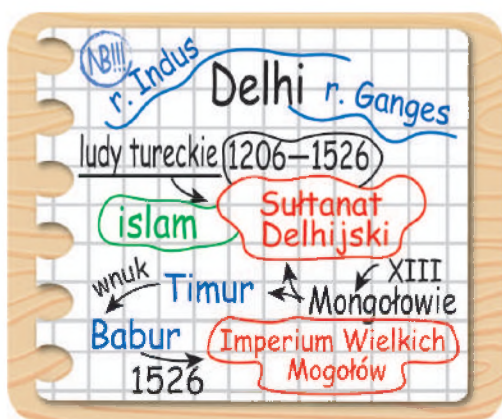 NB!!!
r. Indus
Delhi
r. Ganges
ludy tureckie 1206–1526
islam
Sułtanat
Delhijski
XIII
wnuk
Timur
Mongołowie
Babur
1526
Imperium Wielkich
Mogołów